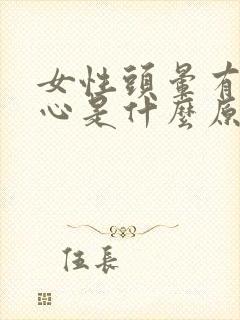 女性頭暈有
心是什麼原
住長